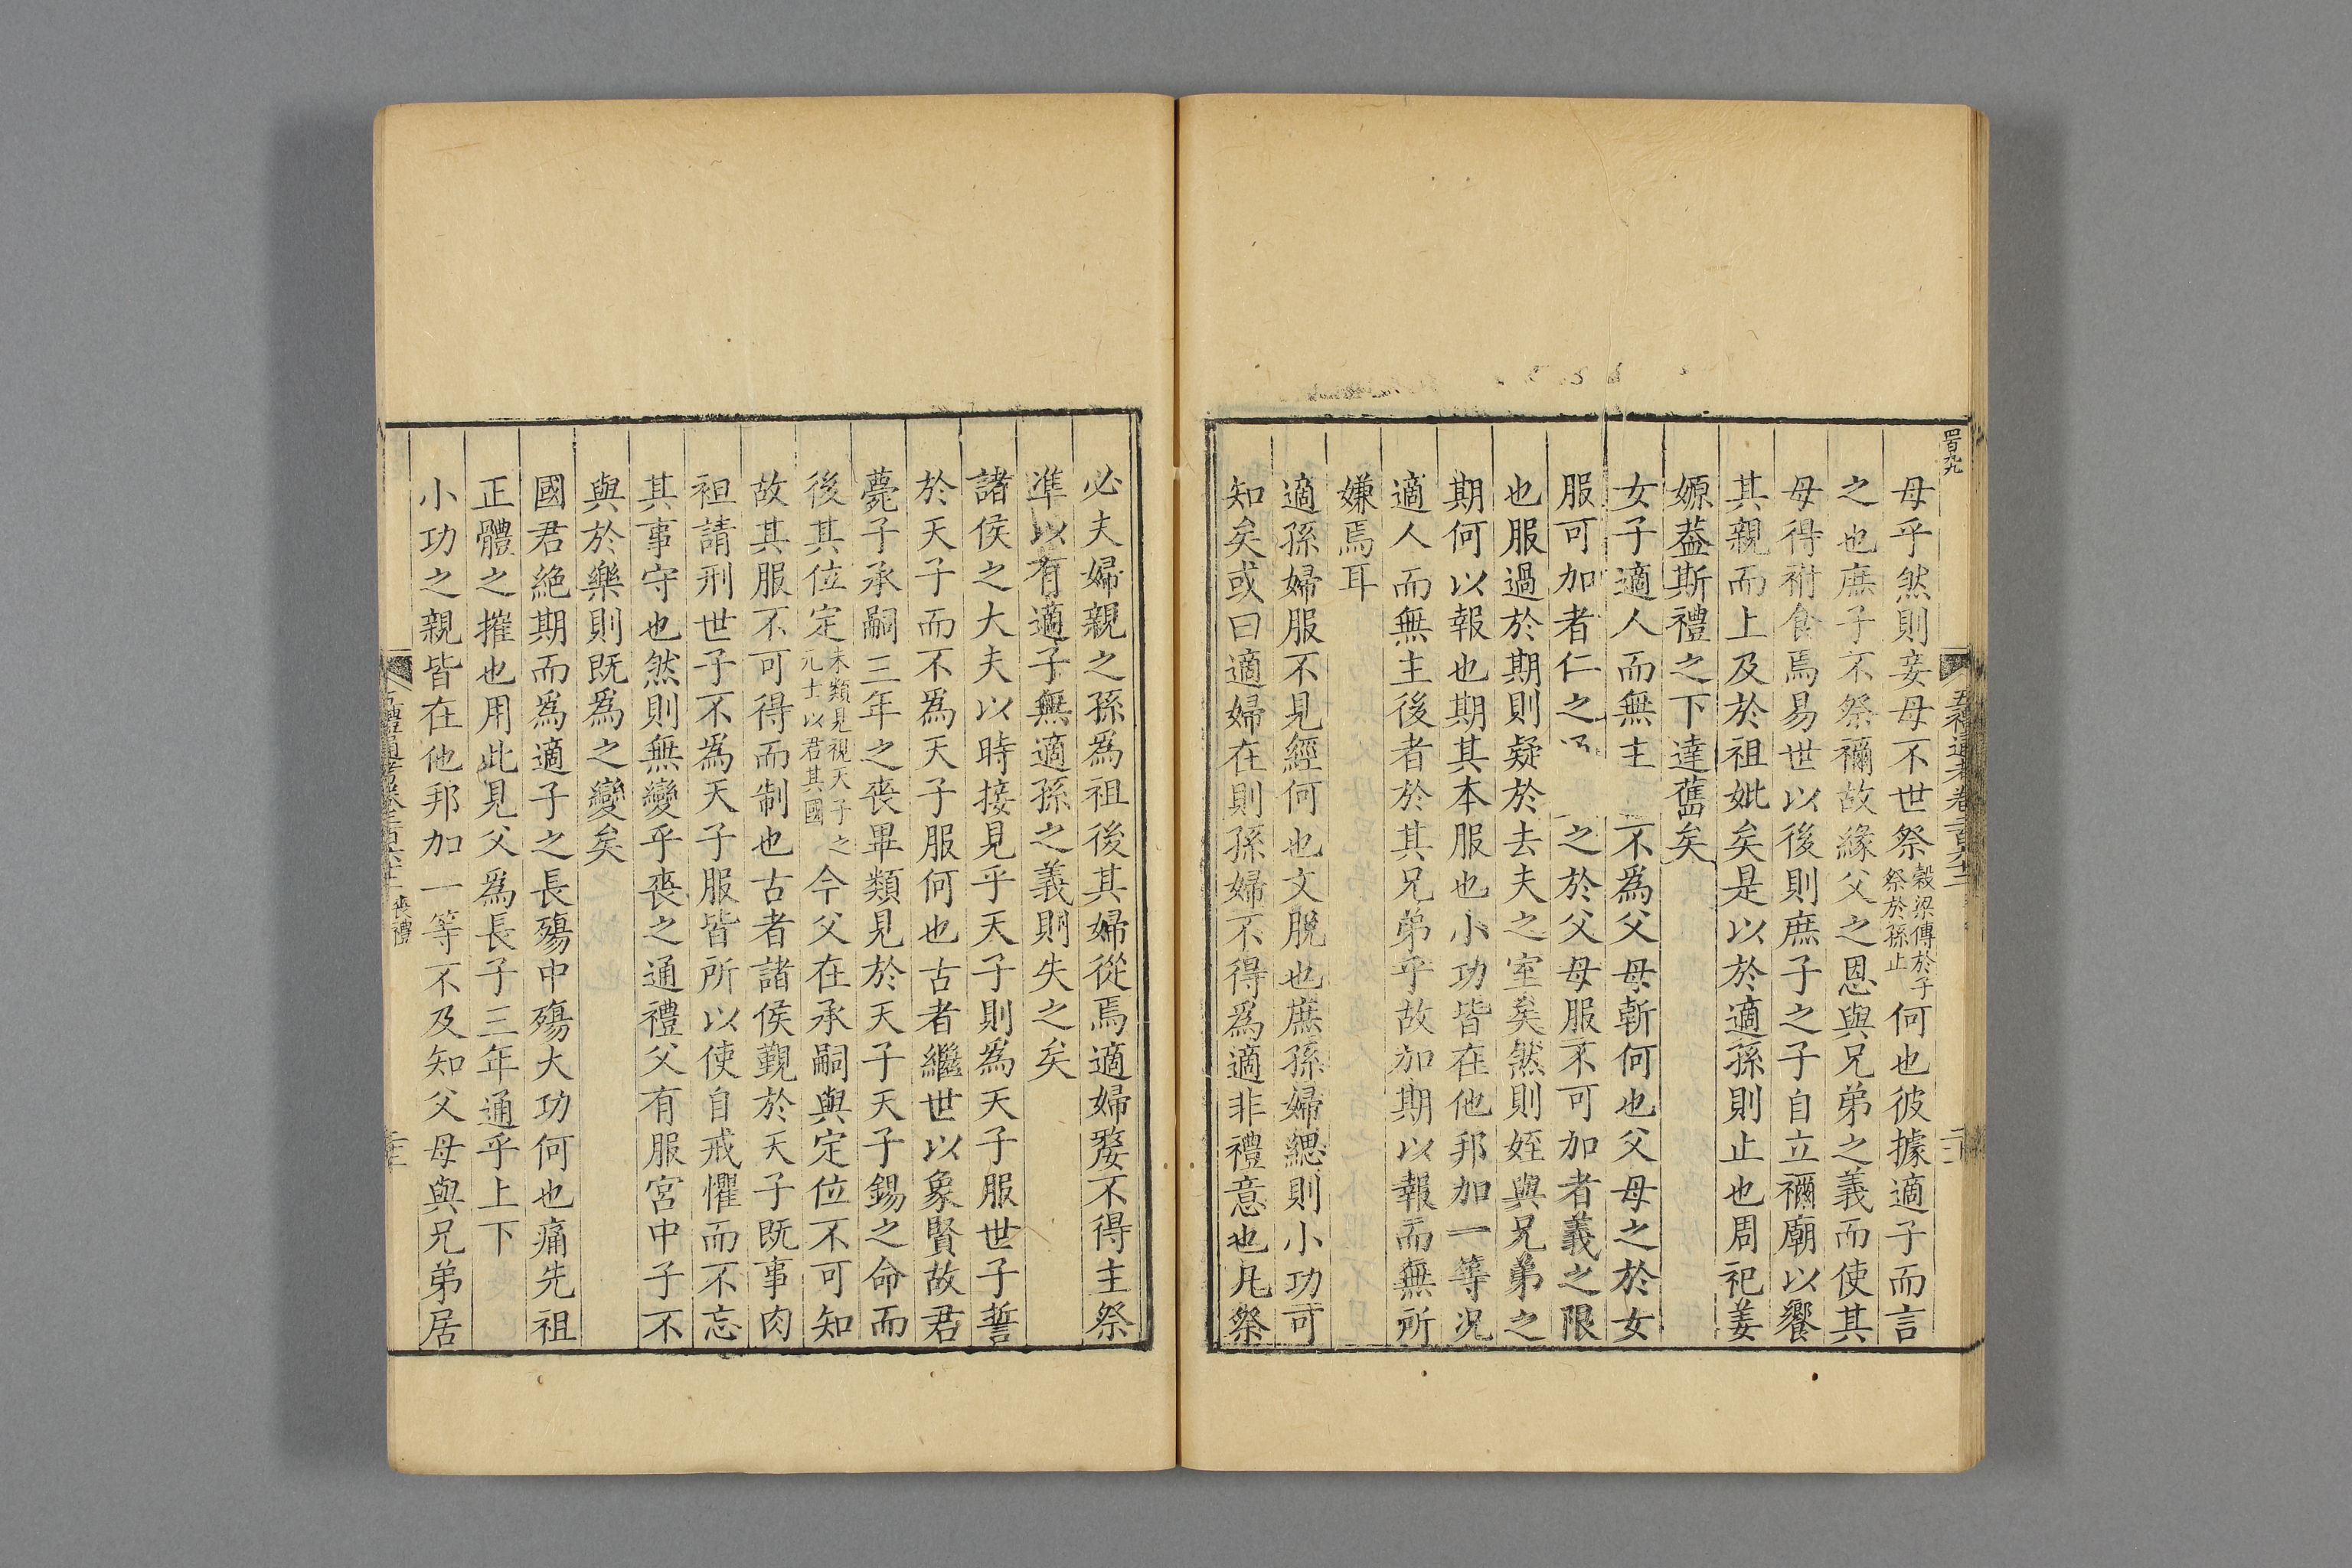 母乎然則妾母不世祭穀梁傳於子祭於孫止何也彼據適子而言
之也庶子不祭禰故緣父之恩與兄弟之義而使其
母得祔食焉易世以後則庶子之子自立禰廟以饗
其親而上及於祖妣矣是以於適孫則止也周祀姜
嫄葢斯禮之下達舊矣
女子適人而無主不為父母斬何也父母之於女
服可加者仁之之於父母服不可加者義之限
也服過於期則疑於去夫之室矣然則姪與兄弟之
期何以報也期其本服也小功皆在他邦加一等况
適人而無主後者於其兄弟乎故加期以報而無所
嫌焉耳
適孫婦服不見經何也文脫也庶孫婦緦則小功可
知矣或曰適婦在則孫婦不得爲適非禮意也凡祭
必夫婦親之孫爲祖後其婦從焉適婦嫠不得主祭
準以有適子無適孫之義則失之矣
諸侯之大夫以時接見乎天子則爲天子服世子誓
於天子而不爲天子服何也古者繼世以象賢故君
薨子承嗣三年之喪畢類見於天子天子錫之命而
後其位定未類見視天子之元士以君其國今父在承嗣與定位不可知
故其服不可得而制也古者諸侯覲於天子既事肉
袒請刑世子不爲天子服皆所以使自戒懼而不忘
其事守也然則無變乎喪之通禮父有服宮中子不
與於樂則既爲之變矣
國君絶期而爲適子之長殤中殤大功何也痛先祖
正體之摧也用此見父爲長子三年通乎上下
小功之親皆在他邦加一等不及知父母與兄弟居
五禮通考卷二百六十一 喪禮